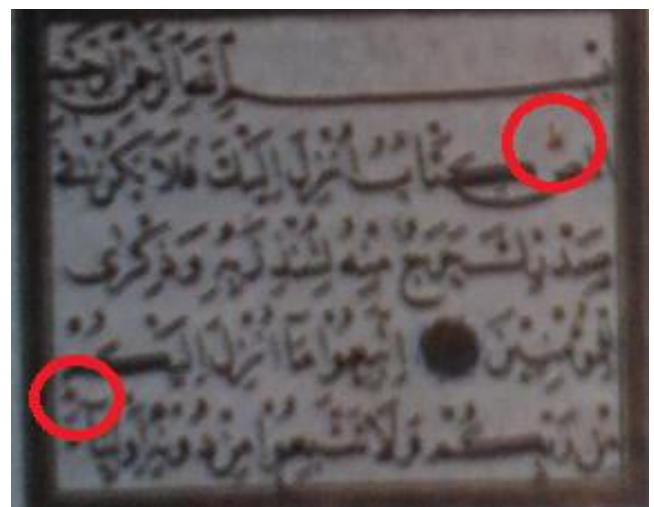 بِسْمِ اللَّهِ الرَّحْمٰنِ الرَّحِيمِ
الٓمٓصٓ كِتَابٌ أُنْزِلَ إِلَيْكَ فَلَا يَكُنْ فِي
صَدْرِكَ حَرَجٌ مِنْهُ لِتُنْذِرَ بِهِ وَذِكْرَى
لِلْمُؤْمِنِينَ اتَّبِعُوا مَا أُنْزِلَ إِلَيْكُمْ
مِنْ رَبِّكُمْ وَلَا تَتَّبِعُوا مِنْ دُونِهِ أَوْلِيَاءَ